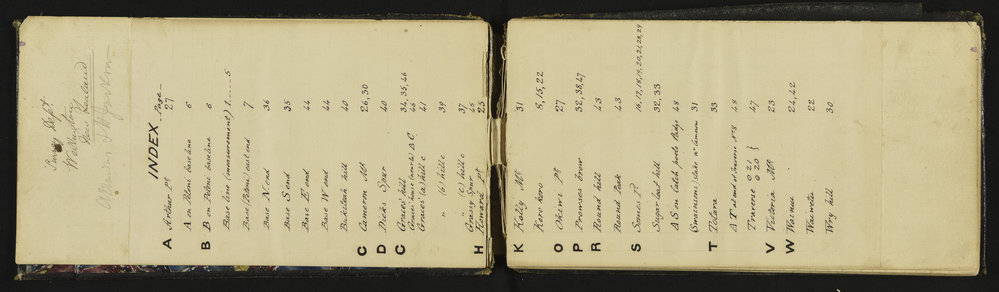 Survey Dept
Wellington
New Zealand
INDEX Page
A Arthur Pt 27
A on Petoni base line 6
B B on Petoni base line 6
Base line (measurement) 1.....5
Base (Petoni) east end 7
Base N end 36
Base S end 35
Base E end 44
Base W end 44
hill 40
C Cameron Mt 26,30
D Dicks Spur 40
C Graces' hill 34,35,46
Graces' house 46
Graces' (a) hill c 41
" (b) hill c 39
" (c) hill c 37
Grassy Spur 45
H Howard Pt 25
K Kelly Mt 31
Koro koro 8,15,22
O Okiwi Pt 27
P Prowses brow 32,38,47
R Round hill 43
Round Peak 43
S Somes Id 16,17,18,19,20,21,28,29
Sugar loaf hill 32,33
Δ S on Catch pools Ridge 48
Swainsons 31
T Titara 33
Δ T 48
Traverse O 21
O 20 } 47
V Victoria Mt 23
W Wainui 24,42
Waiwetu 22
Wry hill 30